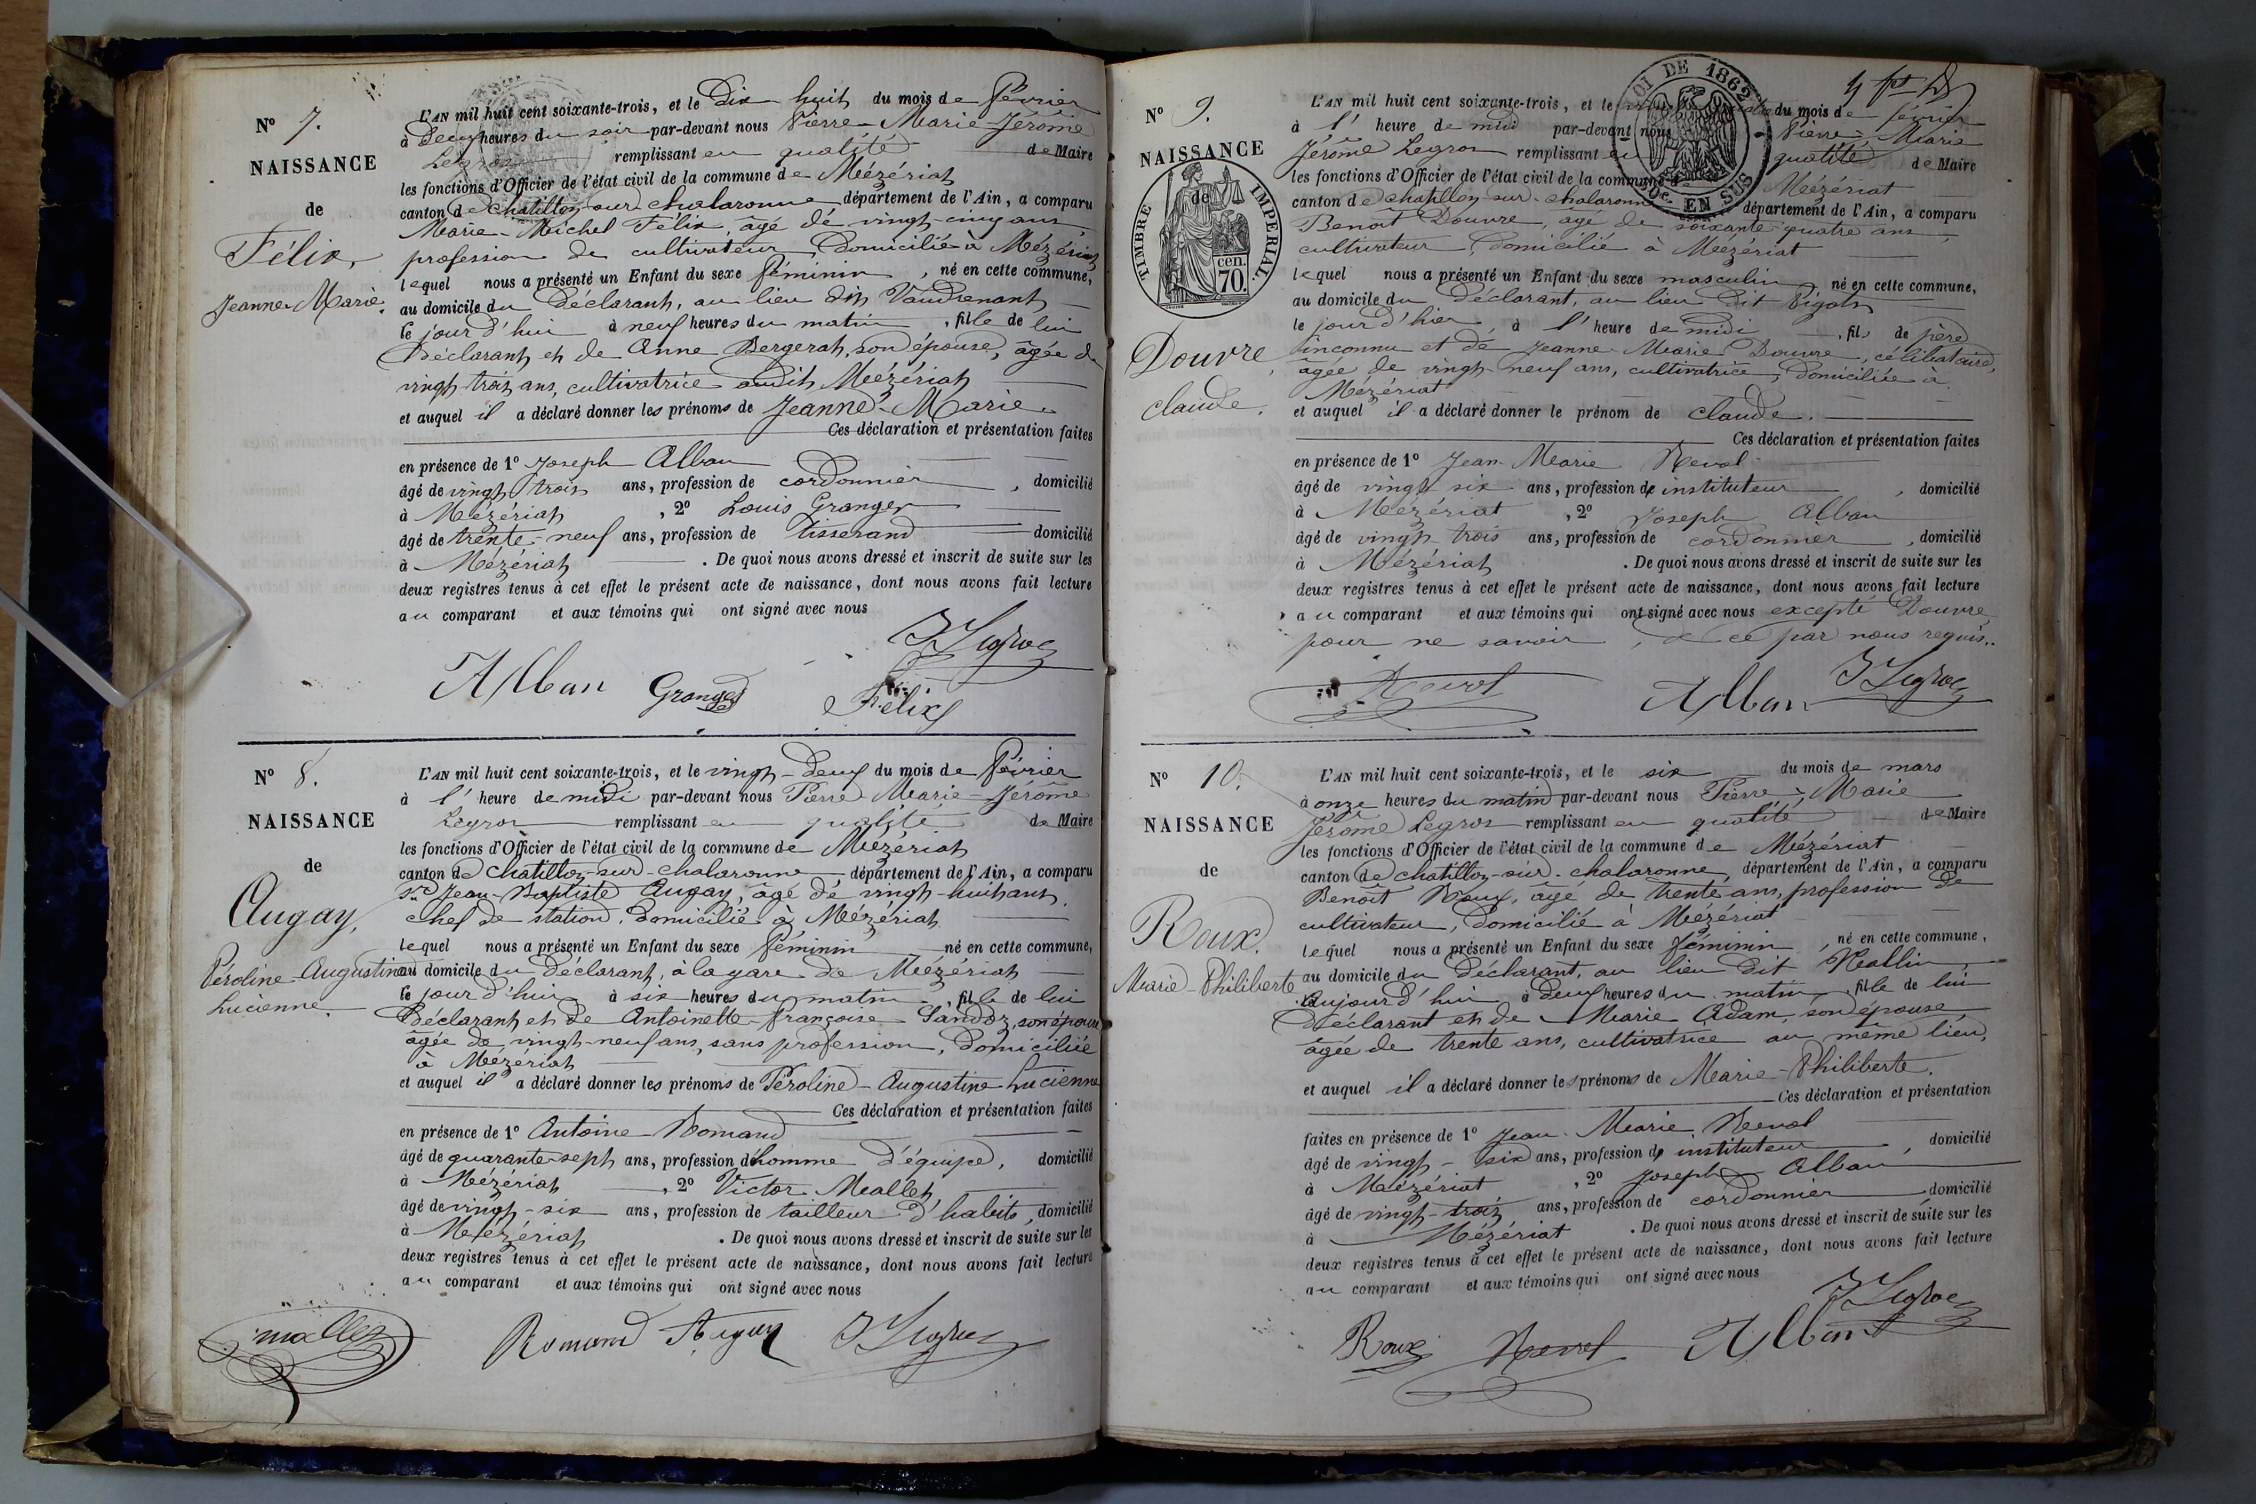 N° 7.
NAISSANCE
de
Félix,
Jeanne-Marie.
L'AN mil huit cent soixante-trois, et le Dix huit du mois de Février
à Deux heures du soir par-devant nous Pierre-Marie-Jérôme
Legros remplissant en qualité de Maire
les fonctions d'Officier de l'état civil de la commune de Mézériat
canton de chatillon-sur-chalaronne département de l'Ain, a comparu
Marie-Michel Félix, âgé de vingt-cinq ans,
profession de cultivateur, Domicilié à Mézériat
lequel nous a présenté un Enfant du sexe féminin, né en cette commune,
au domicile du Déclarant, au lieu dit Vaudrenant
le jour d'hui à neuf heures du matin, fille de lui
Déclarant et de Anne Bergerat, son épouse, âgée de
vingt-trois ans, cultivatrice audit Mézériat
et auquel il a déclaré donner les prénoms de Jeanne-Marie
Ces déclaration et présentation faites
en présence de 1° Joseph Alban
âgé de vingt trois ans, profession de cordonnier, domicilié
à Mézériat, 2° Louis Granger
âgé de trente-neuf ans, profession de tisserand domicilié
à Mézériat. De quoi nous avons dressé et inscrit de suite sur les
deux registres tenus à cet effet le présent acte de naissance, dont nous avons fait lecture
au comparant et aux témoins qui ont signé avec nous
JLegros
Alban Granger Félix
N° 8.
NAISSANCE
de
Augay,
Péroline-Augustine
Lucienne.
L'AN mil huit cent soixante-trois, et le vingt-deux du mois de Février
à l'heure de midi par-devant nous Pierre-Marie-Jérôme
Legros remplissant en qualité de Maire
les fonctions d'Officier de l'état civil de la commune de Mézériat
canton de chatillon-sur-chalaronne département de l'Ain, a comparu
Sr Jean-Baptiste Augay, âgé de vingt-huit ans,
chef de station, domicilié à Mézériat
lequel nous a présenté un Enfant du sexe féminin né en cette commune,
au domicile du Déclarant, à la gare de Mézériat
le jour d'hui à six heures du matin, fille de lui
Déclarant et de Antoinette-françoise Sandoz, son épouse
âgée de vingt-neuf ans, sans profession, domiciliée
à Mézériat
et auquel il a déclaré donner les prénoms de Péroline-Augustine Lucienne
Ces déclaration et présentation faites
en présence de 1° Antoine Romand
âgé de quarante-sept ans, profession d'homme d'équipe, domicilié
à Mézériat, 2° Victor Mallet
âgé de vingt-six ans, profession de tailleur d'habits, domicilié
à Mézériat. De quoi nous avons dressé et inscrit de suite sur les
deux registres tenus à cet effet le présent acte de naissance, dont nous avons fait lecture
au comparant et aux témoins qui ont signé avec nous
mallet Romand Augay JLegros
N° 9.
NAISSANCE
de
TIMBRE IMPERIAL
cen.
70.
Douvre,
claude.
LOI DE 1862
EN SUS
L'AN mil huit cent soixante-trois, et le du mois de février
à l'heure de midi par-devant nous Pierre-Marie
Jérôme Legros remplissant en qualité de Maire
les fonctions d'Officier de l'état civil de la commune de Mézériat
canton de chatillon-sur-chalaronne département de l'Ain, a comparu
Benoît Douvre, âgé de soixante-quatre ans,
cultivateur, Domicilié à Mézériat
lequel nous a présenté un Enfant du sexe masculin, né en cette commune,
au domicile du Déclarant, au lieu dit
le jour d'hier, à l'heure de midi, fils de père
inconnu et de Jeanne-Marie Douvre, célibataire,
âgée de vingt-neuf ans, cultivatrice, domiciliée à
Mézériat
et auquel il a déclaré donner le prénom de claude.
Ces déclaration et présentation faites
en présence de 1° Jean-Marie Revol
âgé de vingt six ans, profession de instituteur, domicilié
à Mézériat, 2° Joseph Alban
âgé de vingt-trois ans, profession de cordonnier, domicilié
à Mézériat. De quoi nous avons dressé et inscrit de suite sur les
deux registres tenus à cet effet le présent acte de naissance, dont nous avons fait lecture
au comparant et aux témoins qui ont signé avec nous excepté Douvre
pour ne savoir, de ce par nous requis..
Revol Alban JLegros
N° 10.
NAISSANCE
de
Roux.
Marie-Philiberte
L'AN mil huit cent soixante-trois, et le six du mois de mars
à onze heures du matin par-devant nous Pierre-Marie
Jérôme Legros remplissant en qualité de Maire
les fonctions d'Officier de l'état civil de la commune de Mézériat
canton de chatillon-sur-chalaronne, département de l'Ain, a comparu
Benoît Roux, âgé de trente ans, profession de
cultivateur, domicilié à Mézériat
lequel nous a présenté un Enfant du sexe féminin, né en cette commune,
au domicile du Déclarant, au lieu dit
aujourd'hui à deux heures du matin, fille de lui
Déclarant et de Marie Adam, son épouse
âgée de trente ans, cultivatrice au même lieu,
et auquel il a déclaré donner les prénoms de Marie-Philiberte.
Ces déclaration et présentation
faites en présence de 1° Jean-Marie Revol
âgé de vingt-six ans, profession de instituteur, domicilié
à Mézériat, 2° Joseph Alban
âgé de vingt-trois ans, profession de cordonnier domicilié
à Mézériat. De quoi nous avons dressé et inscrit de suite sur les
deux registres tenus à cet effet le présent acte de naissance, dont nous avons fait lecture
au comparant et aux témoins qui ont signé avec nous
JLegros
Roux Revol Alban